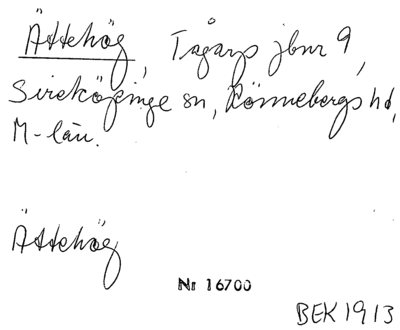 Ättehög, Tågarps jbnr 9,
Sireköpinge sn, Rönnebergs hd,
M-län.
Ättehög
Nr 16700
BEK 1913